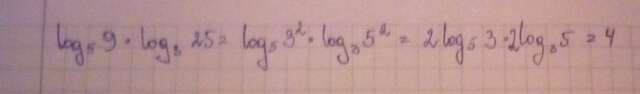 log₅ 9 · log₃ 25 = log₅ 3² · log₃ 5² = 2 log₅ 3 · 2 log₃ 5 = 4